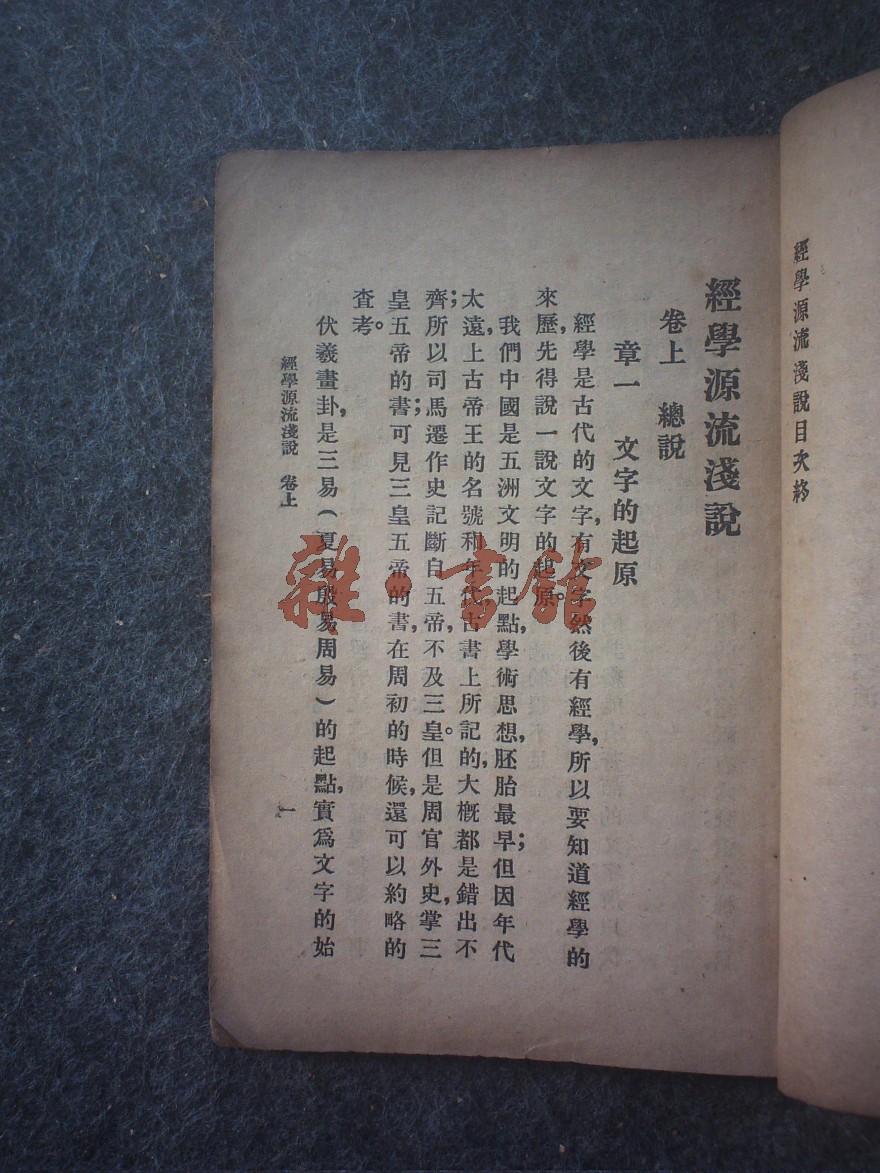 經學源流淺說目次終
經學源流淺說
卷上　總說
章一　文字的起原
經學是古代的文字，有文字然後有經學，所以要知道經學的
來歷，先得說一說文字的起原。
我們中國是五洲文明的起點，學術思想，胚胎最早；但因年代
太遠，上古帝王的名號和年代，古書上所記的，大概都是錯出不
齊；所以司馬遷作史記斷自五帝，不及三皇。但是周官外史，掌三
皇五帝的書；可見三皇五帝的書，在周初的時候，還可以約略的
查考。
伏羲畫卦，是三易（夏易殷易周易）的起點，實爲文字的始
經學源流淺說　卷上
一
雜·書館